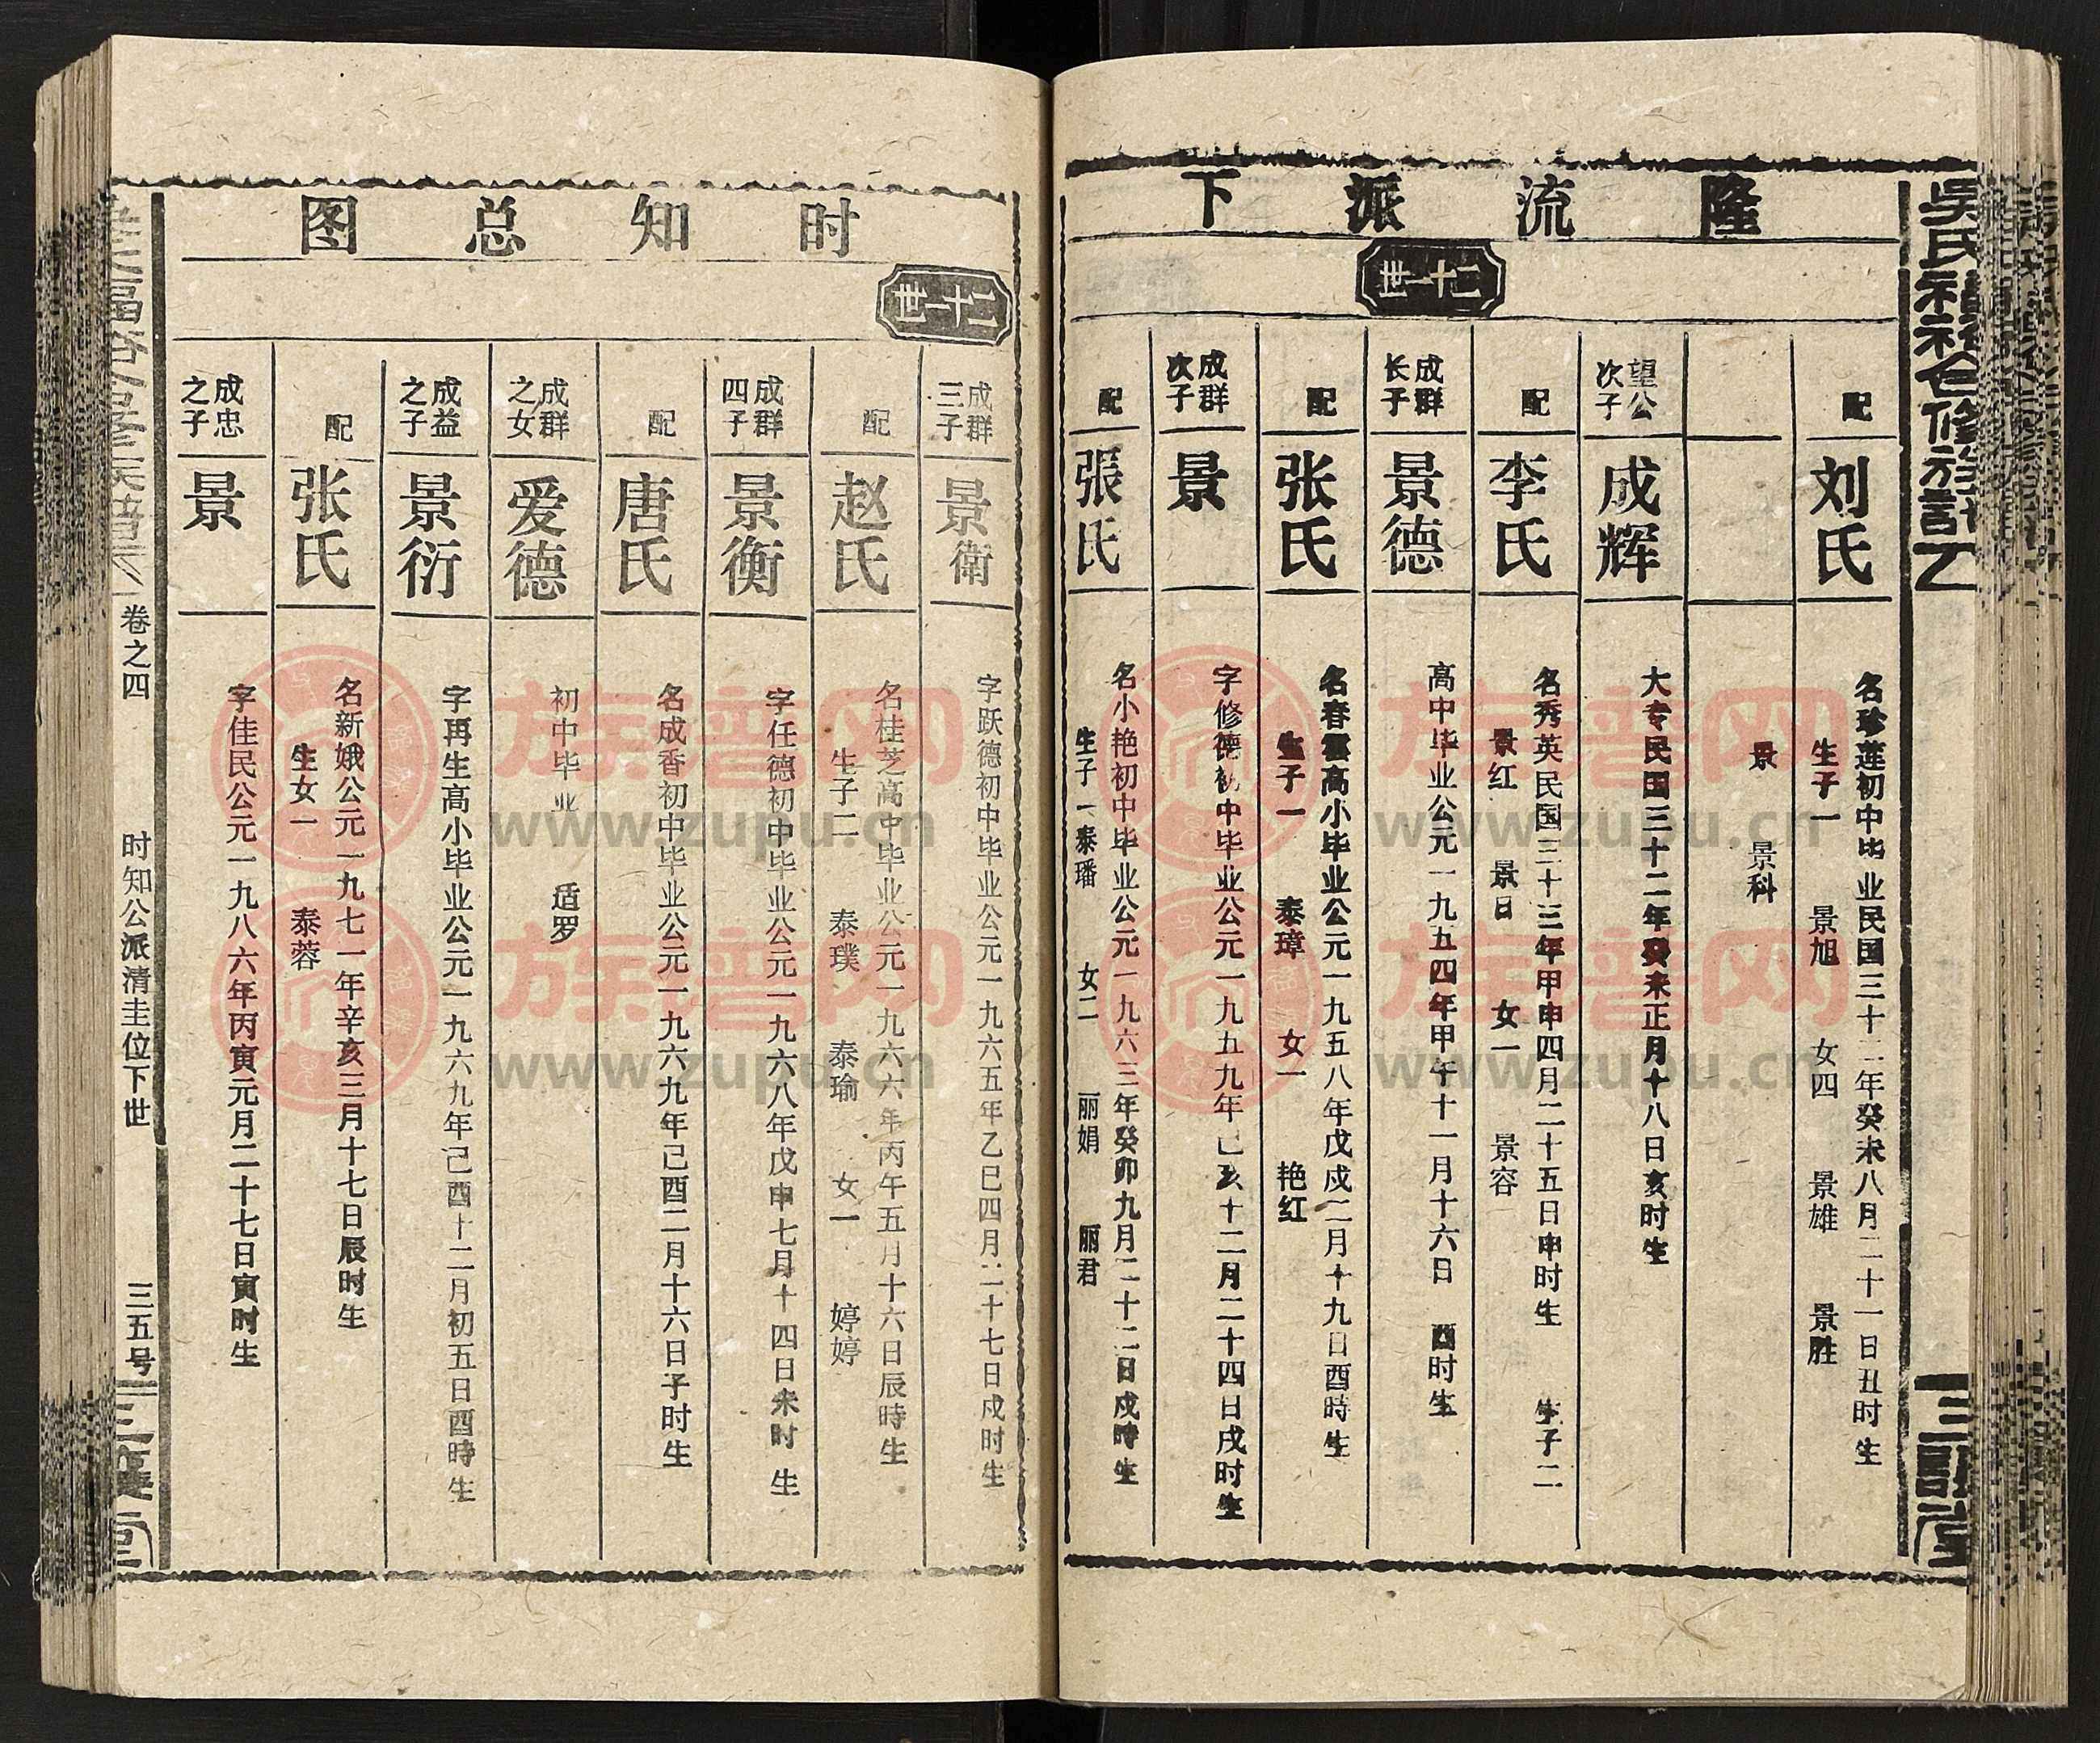 隆流派下
二十一世
配
刘氏
名珍莲初中毕业民国三十二年癸未八月二十一日丑时生
生子一 景旭 女四 景雄 景胜
景 景科
望公次子
成辉
大专民国三十二年癸未正月十八日亥时生
配
李氏
名秀英民国三十三年甲申四月二十五日申时生 生子二
景红 景日 女一 景容
成群长子
景德
高中毕业公元一九五四年甲午十一月十六日 酉时生
配
张氏
名春雲高小毕业公元一九五八年戊戌二月十九日酉時生
生子一 泰璋 女一 艳红
成群次子
景
字修德初中毕业公元一九五九年己亥十二月二十四日戌时生
配
張氏
名小艳初中毕业公元一九六三年癸卯九月二十二日戌時生
生子一泰璠 女二 丽娟 丽君
三讓堂
时知总图
二十一世
成群三子
景衛
字跃德初中毕业公元一九六五年乙巳四月二十七日戌时生
配
赵氏
名桂芝高中毕业公元一九六六年丙午五月十六日辰時生
生子二 泰璞 泰瑜 女一 婷婷
成群四子
景衡
字任德初中毕业公元一九六八年戊申七月十四日未时生
配
唐氏
名成香初中毕业公元一九六九年己酉二月十六日子时生
成群之女
爱德
初中毕业 适罗
成益之子
景衍
字再生高小毕业公元一九六九年己酉十二月初五日酉時生
配
张氏
名新娥公元一九七一年辛亥三月十七日辰时生
生女一 泰蓉
成忠之子
景
字佳民公元一九八六年丙寅元月二十七日寅时生
卷之四 时知公派清圭位下世 三五号
族谱网
www.zupu.cn
族谱网
www.zupu.cn
族谱网
www.zupu.cn
族谱网
www.zupu.cn